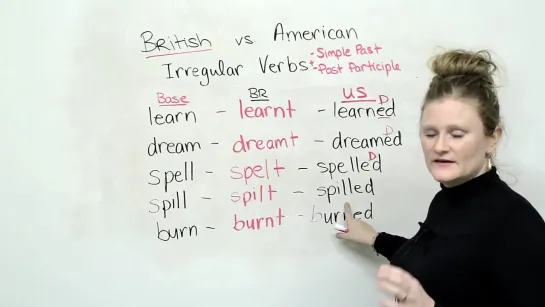 British vs American
Irregular Verbs - Simple Past
- Past Participle
Base BR US
learn - learnt - learned D
dream - dreamt - dreamed D
spell - spelt - spelled D
spill - spilt - spilled
burn - burnt - burned